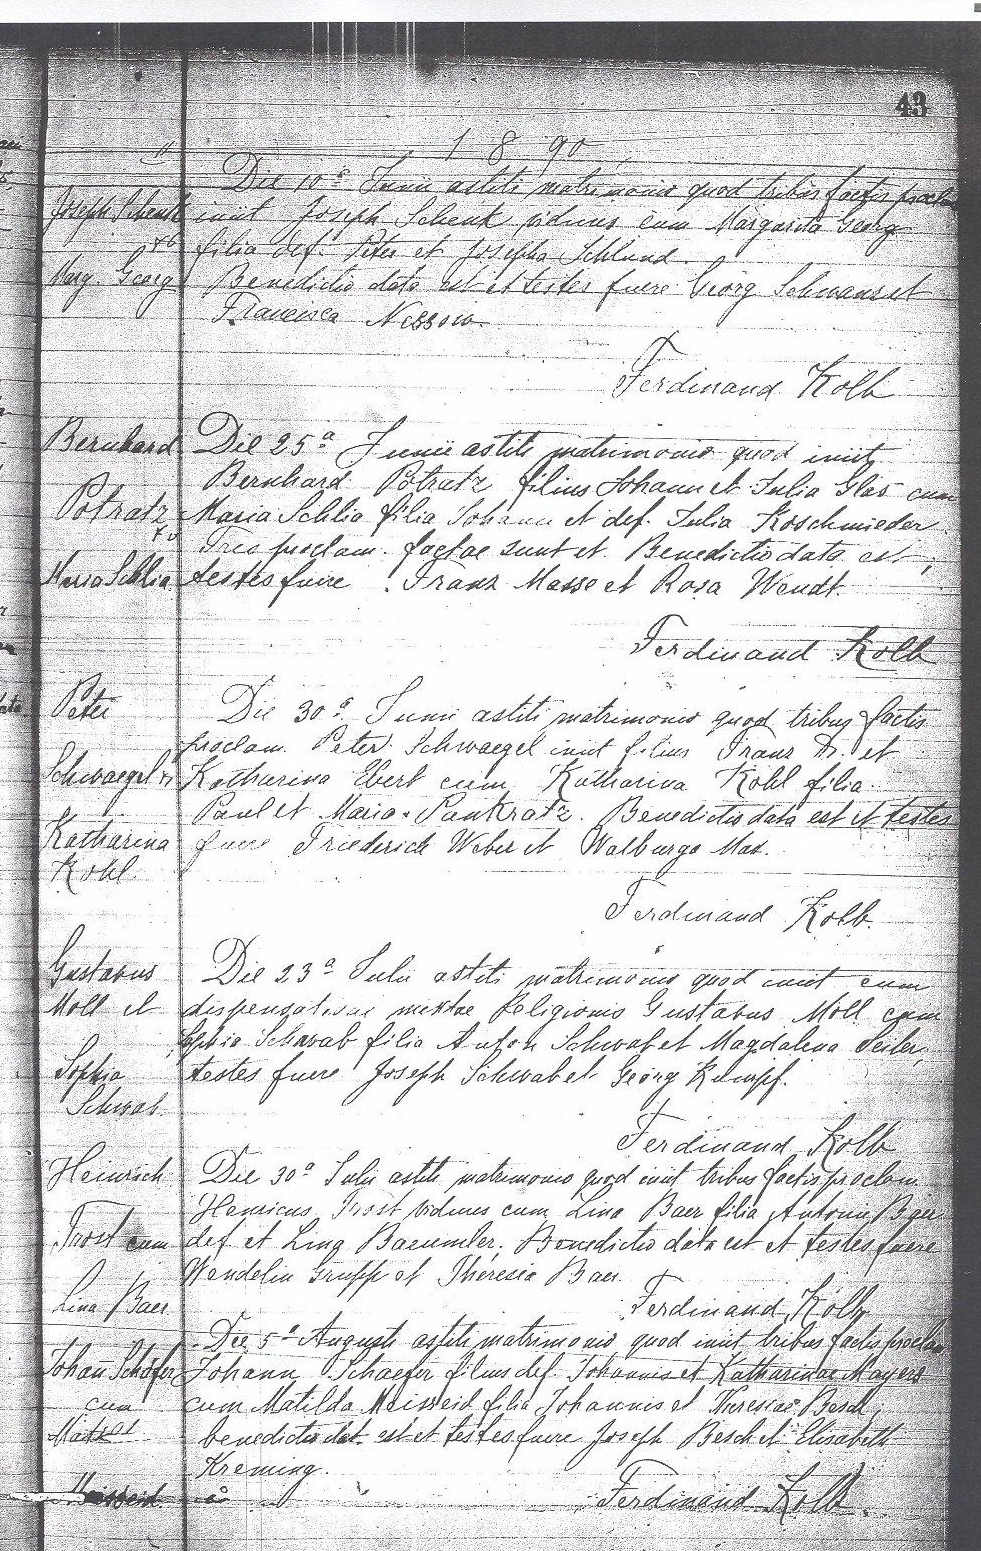 43
1890
Joseph Schenk
et
Marg. Georg
Die 10a Junii astiti matrimonio quod tribus factis proclam
iniit Joseph Schenk viduus cum Margarita Georg
filia def. Peter et Josepha Schlund.
Benedictio data est et testes fuere Georg Schwanset
Francisca Nessow.
Ferdinand Kolb
Bernhard
Potratz
et
Maria Schlia
Die 25a Junii astiti matrimonio quod iniit
Bernhard Potratz filius Johann et Julia Glas cum
Maria Schlia filia Johann et def. Julia Koschmieder
Tres proclam. factae sunt et Benedictio data est,
testes fuere Franz Masse et Rosa Wendt.
Ferdinand Kolb
Peter
Schwaegel et
Katharina
Kohl.
Die 30a Junii astiti matrimonio quod tribus factis
proclam. Peter Schwaegel iniit filius Franz et
Katharina Ebert cum Katharina Kohl filia
Paul et Maria Pankratz. Benedictio data est et testes
fuere Friederich Weber et Walburga Max.
Ferdinand Kolb.
Gustavus
Moll et
Sophia
Schwab.
Die 23a Julii astiti matrimonio quod iniit cum
dispensatione mixtae Religionis Gustavus Moll cum
Sophia Schwab filia Anton Schwab et Magdalena Seiler,
testes fuere Joseph Schwab et Georg Kumpf.
Ferdinand Kolb
Heinrich
Trost cum
Lina Baer
Die 30a Julii astiti matrimonio quod iniit tribus factis proclam.
Henricus Trost viduus cum Lina Baer filia Antonii Baer
def et Lina Baeumler. Benedictio data est et testes fuere
Wendelin Grupp et Theresia Baer
Ferdinand Kolb
Johan Schäfer
cum
Die 5a Augusti astiti matrimonio quod iniit tribus factis proclam
Johann Schaefer filius def. Johannis et Katharinae Mayers
cum Matilda Meisseid filia Johannis et Theresiae Besch;
benedictio dat est et testes fuere Joseph Besch et Elisabeth
Krening.
Ferdinand Kolb.